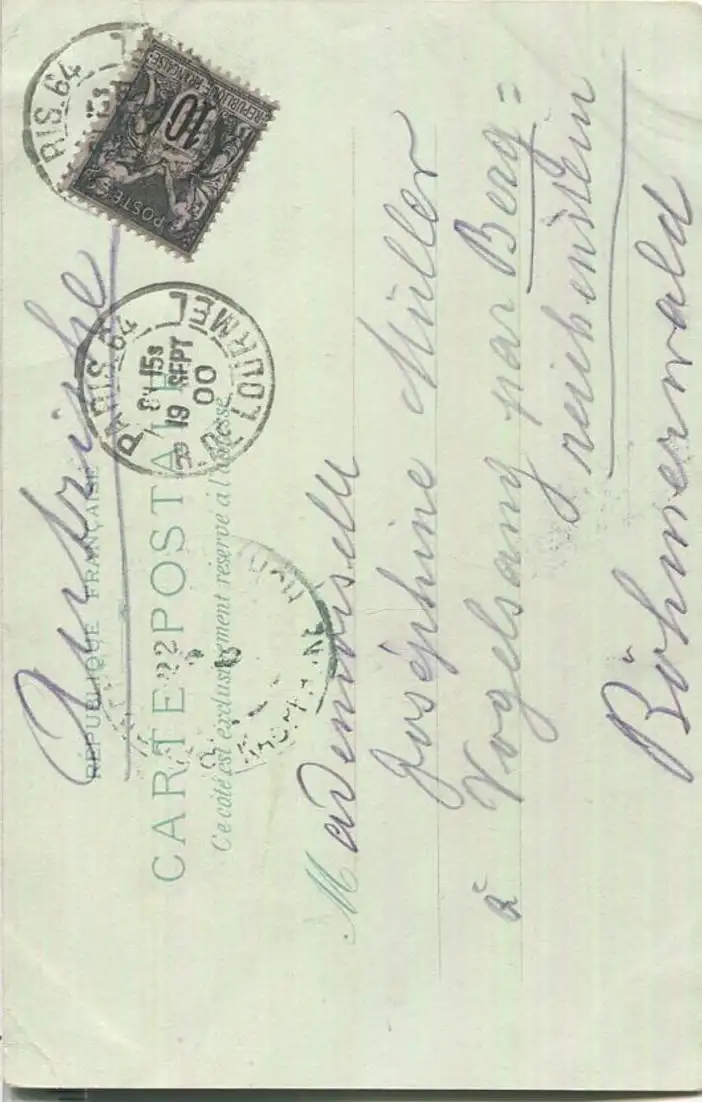 RÉPUBLIQUE FRANÇAISE
Autriche
CARTE POSTALE
Ce côté est exclusivement réservé à l'adresse
REPUBLIQUE FRANÇAISE
10
POSTES
RIS. 64
PARIS. 64
8E 15s
19 SEPT
00
LOURMEL
Mademoiselle
Joséphine Müller
à Vogelsang par Berg=
reichenstein
Böhmerwald